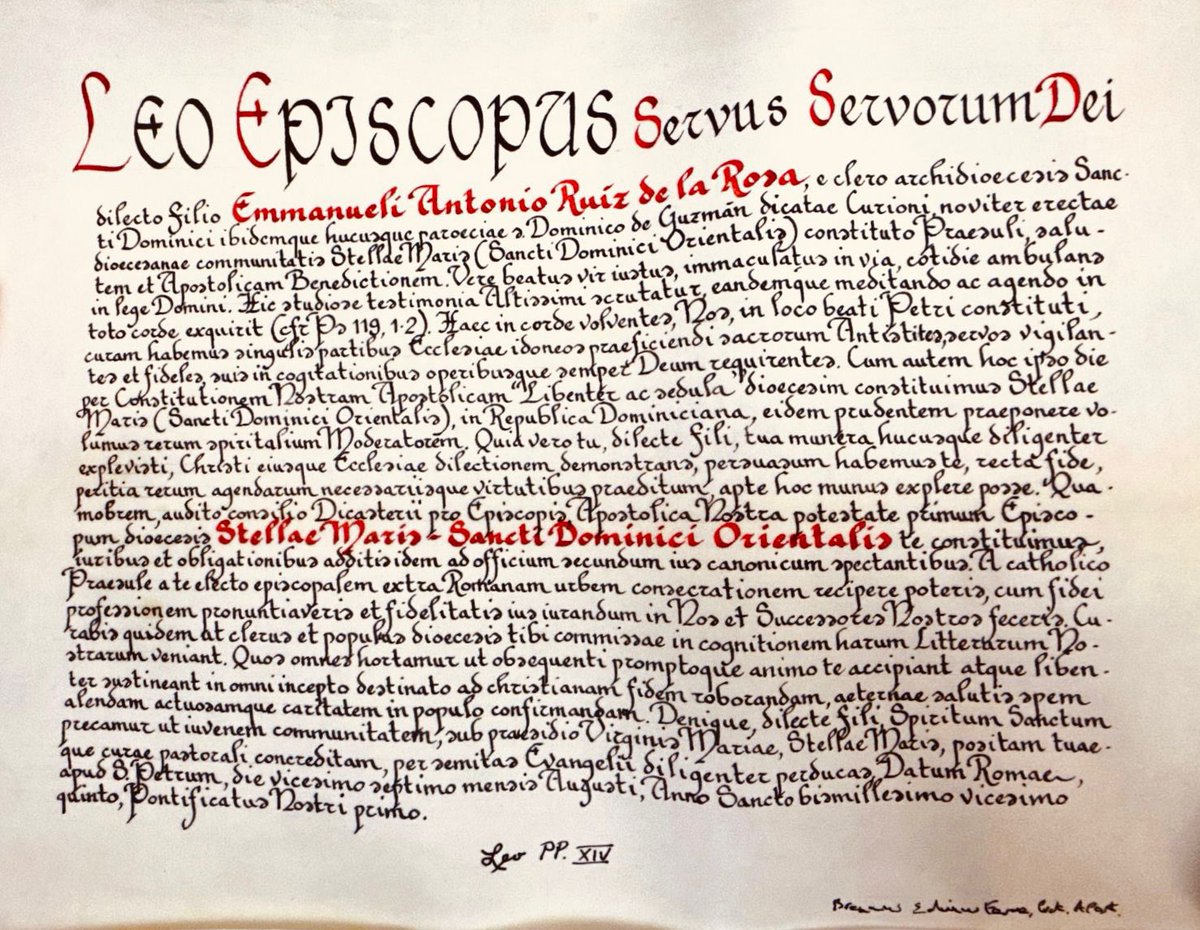 Leo Episcopus Servus Servorum Dei
dilecto Filio Emmanueli Antonio Ruiz de la Rosa, e clero archidioecesis Sanc-
ti Dominici ibidemque hucusque paroeciae s. Dominico de Guzmán dicatae Curioni, noviter erectae
dioecesanae communitatis Stellae Maris (Sancti Dominici Orientalis) constituto Praesuli, salu-
tem et Apostolicam Benedictionem. Vere beatus vir iustus, immaculatus in via, cotidie ambulans
in lege Domini. Hic studiose testimonia Altissimi scrutatur, eandemque meditando ac agendo in
toto corde exquirit (cfr Ps 119, 1-2). Haec in corde volventes, Nos, in loco beati Petri constituti,
curam habemus singulis partibus Ecclesiae idoneos praeficiendi sacrorum Antistites, servos vigilan-
tes et fideles, suis in cogitationibus operibusque semper Deum requirentes. Cum autem hoc ipso die
per Constitutionem Nostram Apostolicam "Libenter ac sedula" dioecesim constituimus Stellae
Maris (Sancti Dominici Orientalis), in Republica Dominiciana, eidem prudentem praeponere vo-
lumus rerum spiritalium Moderatorem. Quia vero tu, dilecte Fili, tua munera hucusque diligenter
explevisti, Christi eiusque Ecclesiae dilectionem demonstrans, persuasum habemus te, recta fide,
peritia rerum agendarum necessariisque virtutibus praeditum, apte hoc munus explere posse. Qua-
mobrem, audito consilio Dicasterii pro Episcopis, Apostolica Nostra potestate primum Episco-
pum dioecesis Stellae Maris - Sancti Dominici Orientalis te constituimus,
iuribus et obligationibus additis idem ad officium secundum ius canonicum spectantibus. A catholico
Praesule a te electo episcopalem extra Romanam urbem consecrationem recipere poteris, cum fidei
professionem pronuntiaveris et fidelitatis ius iurandum in Nos et Successores Nostros feceris. Cu-
rabis quidem ut clerus et populus dioecesis tibi commissae in cognitionem harum Litterarum No-
strarum veniant. Quos omnes hortamur ut obsequenti promptoque animo te accipiant atque liben-
ter sustineant in omni incepto destinato ad christianam fidem roborandam, aeternae salutis spem
alendam actuosamque caritatem in populo confirmandam. Denique, dilecte Fili, Spiritum Sanctum
precamur ut iuvenem communitatem, sub praesidio Virginis Mariae, Stellae Maris, positam tuae-
que curae pastorali concreditam, per semitas Evangelii diligenter perducas. Datum Romae,
apud S. Petrum, die vicesimo septimo mensis Augusti, Anno Sancto bismillesimo vicesimo
quinto, Pontificatus Nostri primo.
Leo PP. XIV